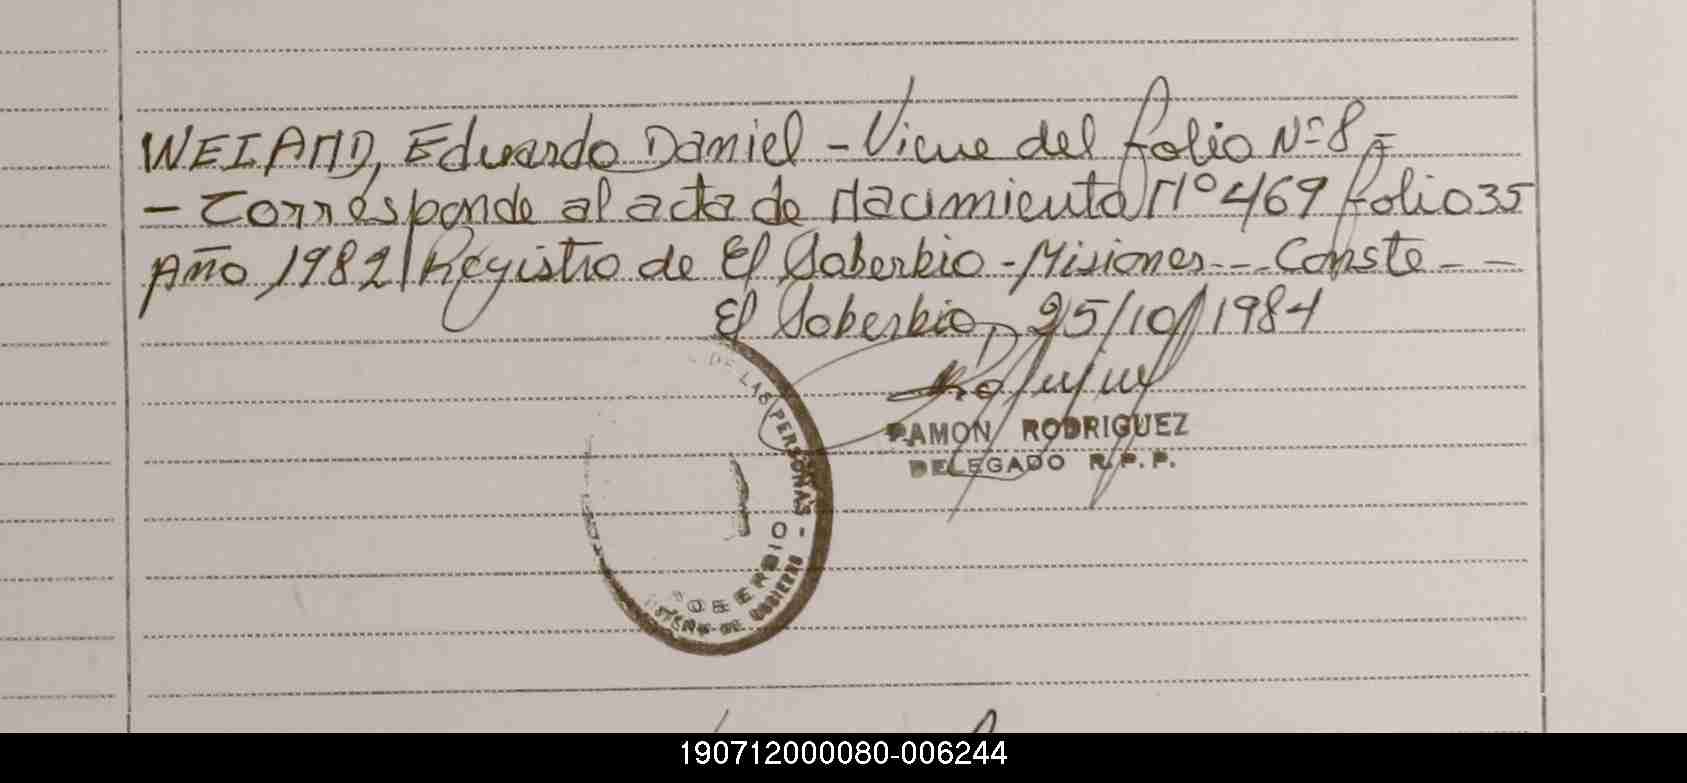 WEIAND, Eduardo Daniel - Viene del folio N° 8 =
- Corresponde al acta de Nacimiento N° 469 folio 35
Año 1982 Registro de El Soberbio - Misiones -- Conste --
El Soberbio, 25/10/1984
RAMON RODRIGUEZ
DELEGADO R.P.P.
DE LAS PERSONAS -
SOBERBIO
DE GOBIERNO
190712000080-006244